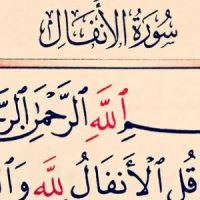 سُورَةُ الأَنفَالِ
ٱللَّهِ ٱلرَّحْمَٰنِ
قُلِ ٱلْأَنفَالُ لِلَّهِ